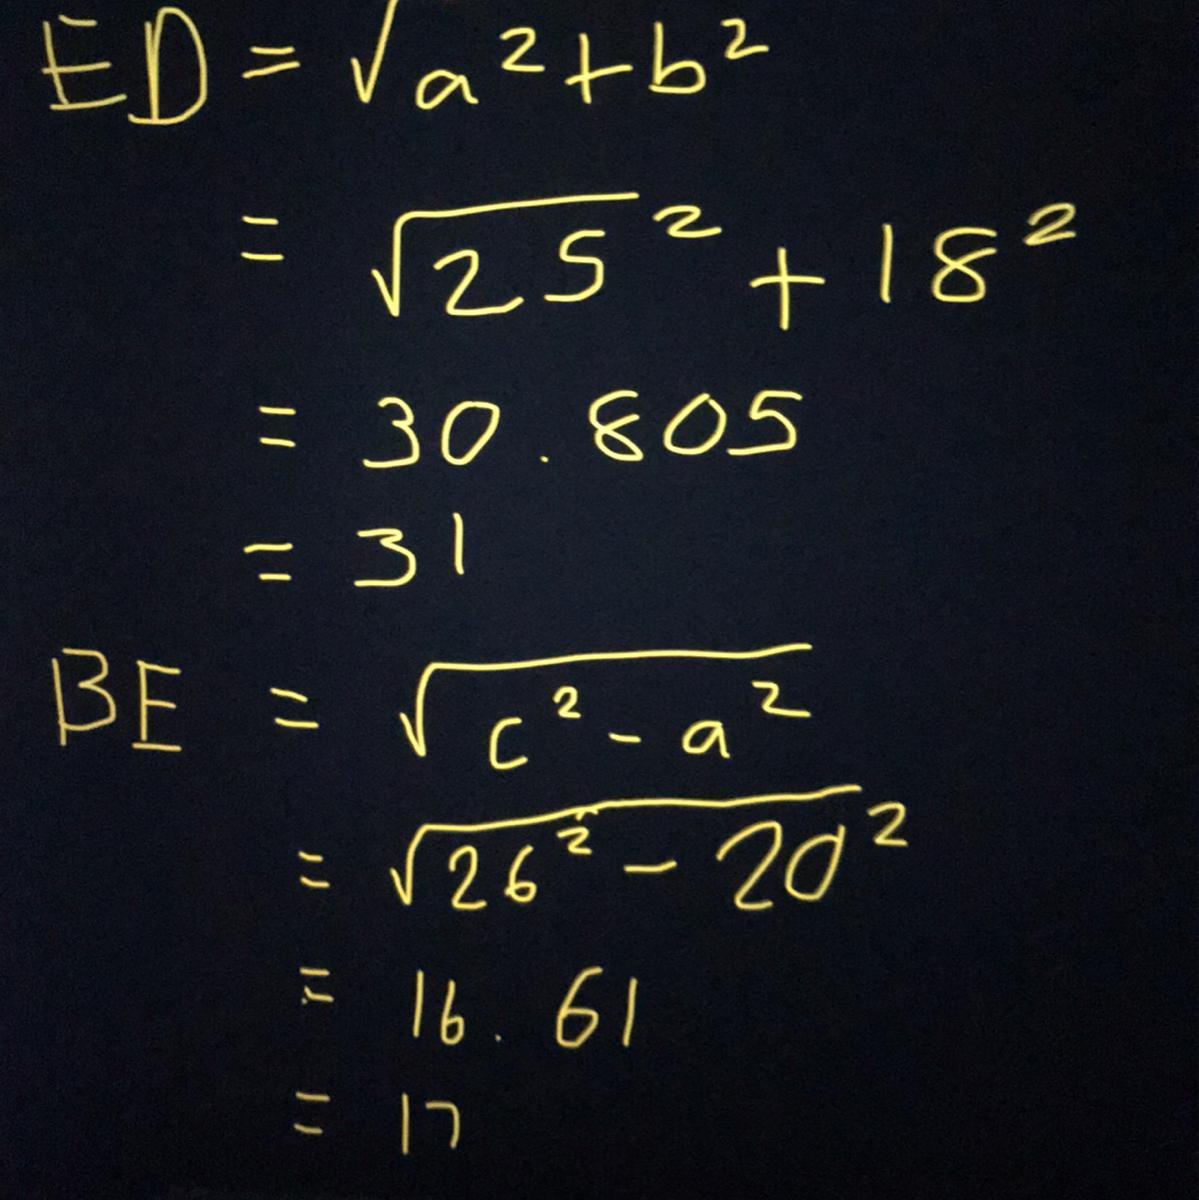 ED = √a²+b²
= √25² + 18²
= 30.805
= 31
BE = √c²-a²
= √26² - 20²
= 16.61
= 17